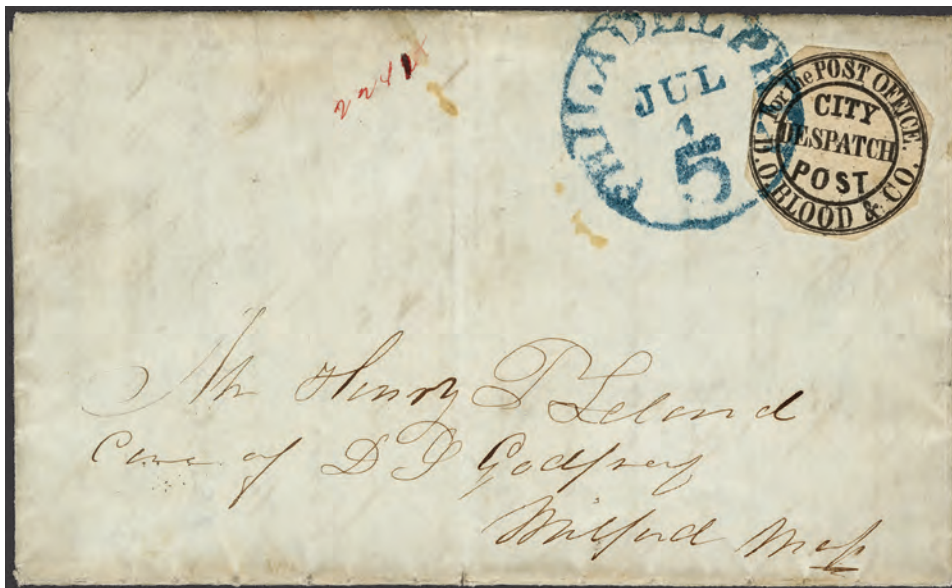 PHILADELPH
JUL
1
5
For the POST OFFICE.
CITY
DESPATCH
POST
D.O. BLOOD & CO.
Mr Henry P Leland
Care of D S Godfrey
Milford Mass